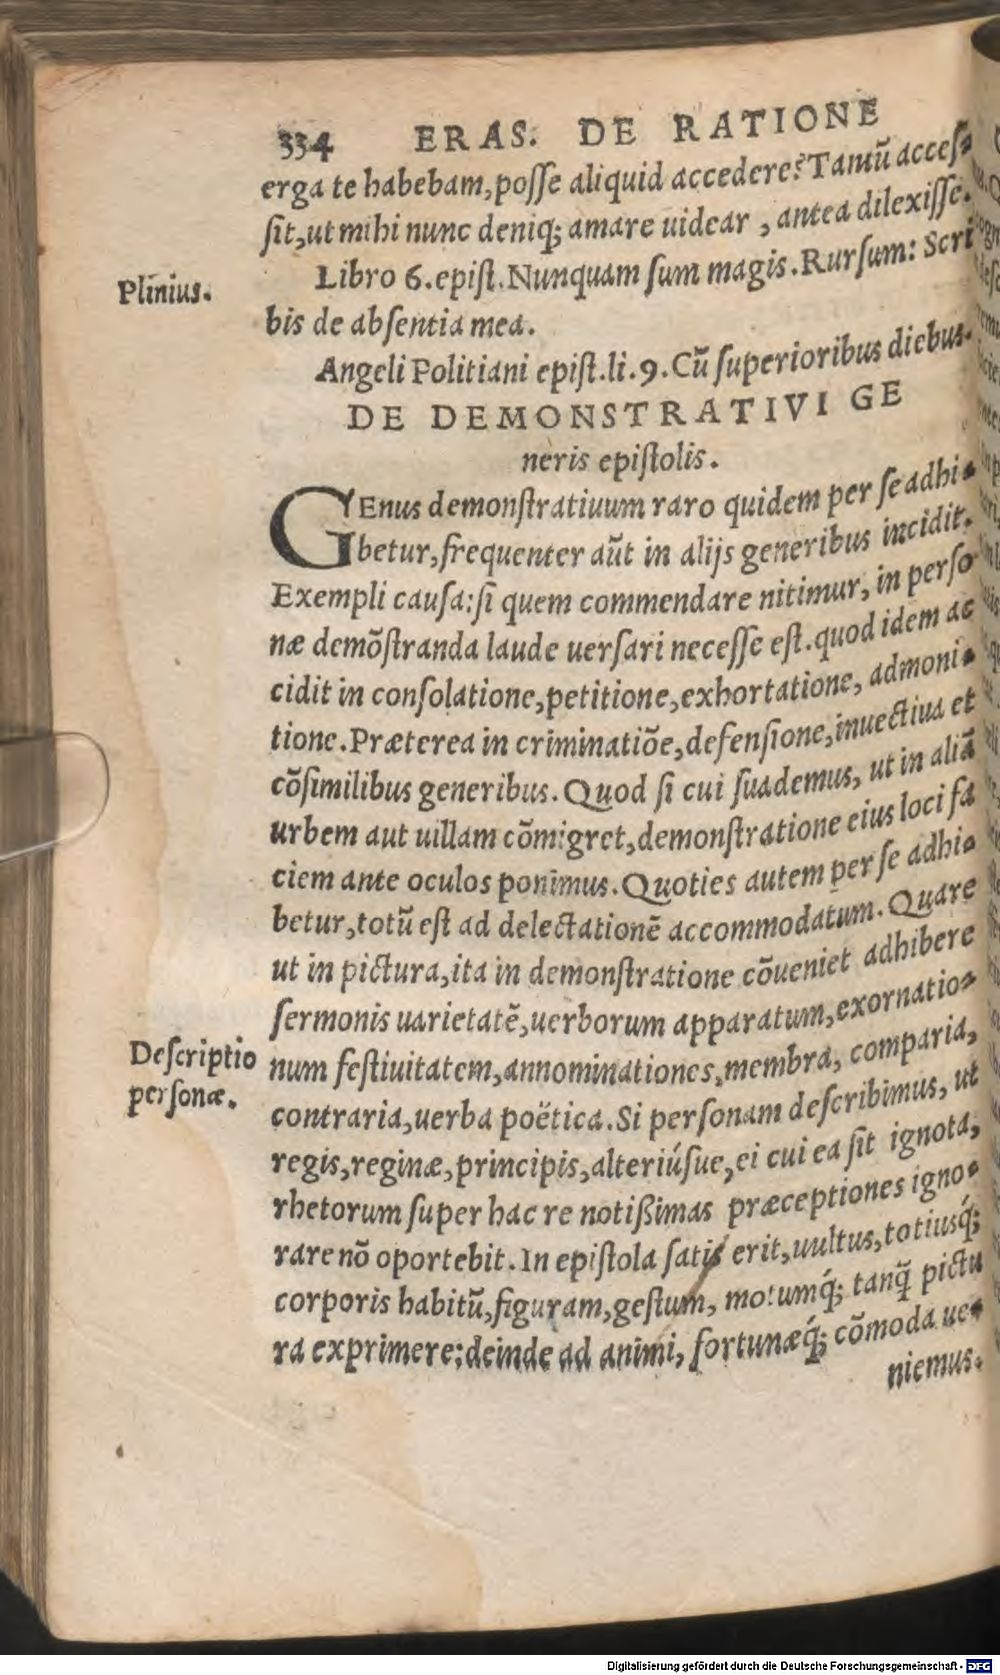 334 ERAS. DE RATIONE
erga te habebam, poſſe aliquid accedere? Tantũ acceſ-
ſit, ut mihi nunc deniq; amare uidear, antea dilexiſſe.
Plinius.
Libro 6. epiſt. Nunquam ſum magis. Rurſum: Scri
bis de abſentia mea.
Angeli Politiani epiſt. li. 9. Cũ ſuperioribus diebus.
DE DEMONSTRATIVI GE
neris epiſtolis.
GEnus demonſtratiuum raro quidem per ſe adhi-
betur, frequenter aũt in alijs generibus incidit.
Exempli cauſa: ſi quem commendare nitimur, in perſo
næ demõſtranda laude uerſari neceſſe eſt. quod idem ac
cidit in conſolatione, petitione, exhortatione, admoni-
tione. Præterea in criminatiõe, defenſione, inuectiua et
cõſimilibus generibus. Quod ſi cui ſuademus, ut in aliã
urbem aut uillam cõmigret, demonſtratione eius loci fa
ciem ante oculos ponimus. Quoties autem per ſe adhi-
betur, totũ eſt ad delectationẽ accommodatum. Quare
ut in pictura, ita in demonſtratione cõueniet adhibere
ſermonis uarietatẽ, uerborum apparatum, exornatio-
Deſcriptio
perſonæ.
num feſtiuitatem, annominationes, membra, comparia,
contraria, uerba poëtica. Si perſonam deſcribimus, ut
regis, reginæ, principis, alteriúſue, ei cui ea ſit ignota,
rhetorum ſuper hac re notißimas præceptiones igno-
rare nõ oportebit. In epiſtola ſatis erit, uultus, totiusq́;
corporis habitũ, figuram, geſtum, motumq́; tanq̃ pictu
ra exprimere; deinde ad animi, fortunæq́; cõmoda ue-
niemus.
Digitalisierung gefördert durch die Deutsche Forschungsgemeinschaft - DFG